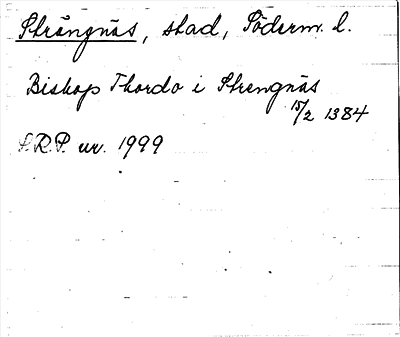 Strängnäs, stad, Söderm. l.
Biskop Thordo i Strengnäs
15/2 1384
S.R.P. nr. 1999